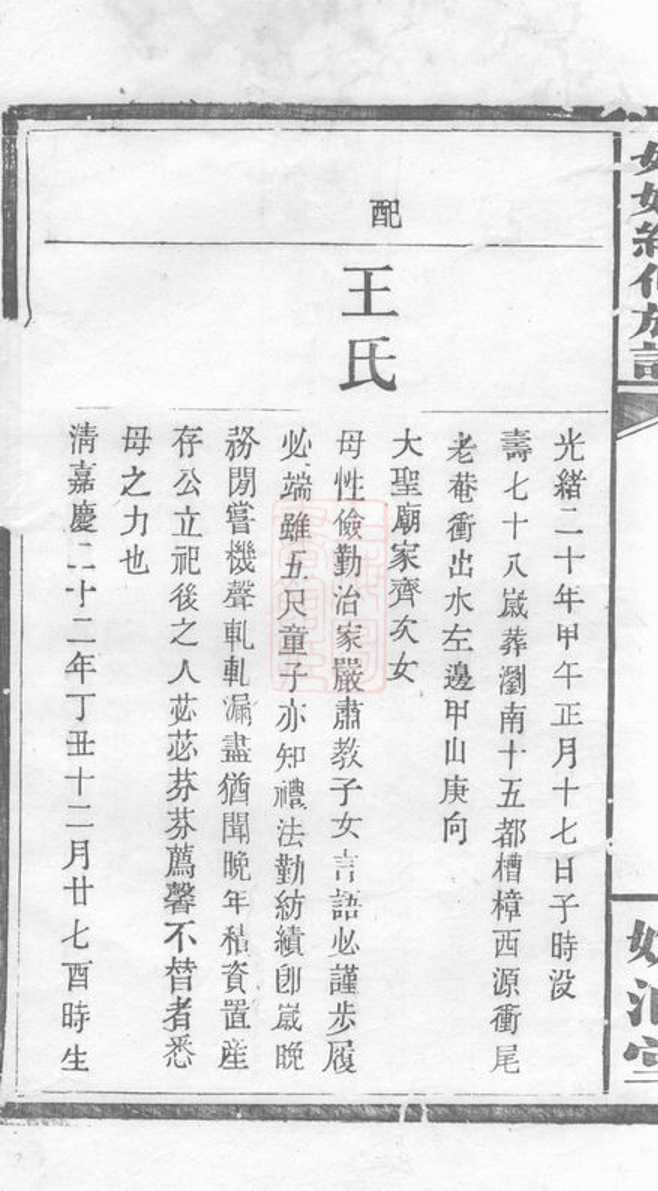 光緒二十年甲午正月十七日子時没
壽七十八嵗葬瀏南十五都槽樟西源衝尾
老菴衝出水左邊甲山庚向
配
王氏
大聖廟家齊次女
母性儉勤治家嚴肅教子女言語必謹步履
必端雖五尺童子亦知禮法勤紡績卽嵗晚
務閒嘗機聲軋軋漏盡猶聞晚年積資置産
存公立祀後之人苾苾芬芬薦馨不替者悉
母之力也
淸嘉慶二十二年丁丑十二月廿七酉時生